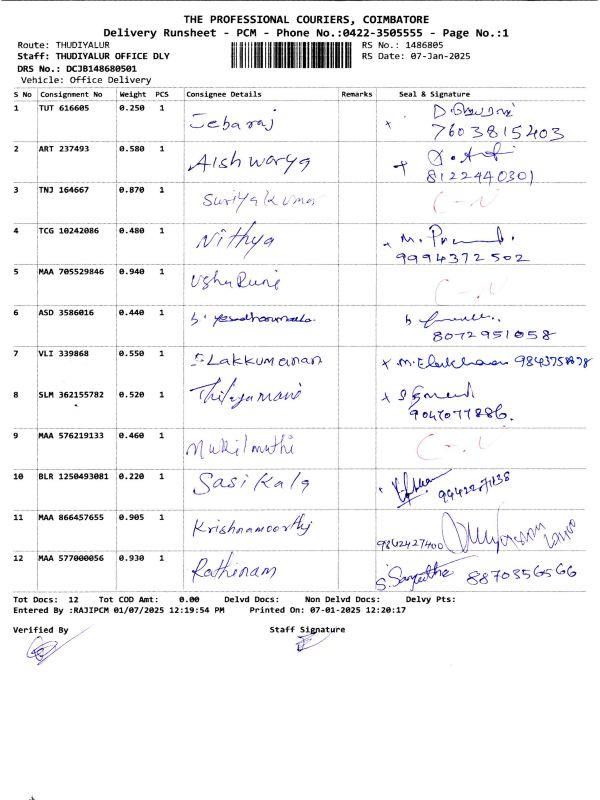 THE PROFESSIONAL COURIERS, COIMBATORE
Delivery Runsheet - PCM - Phone No.:0422-3505555 - Page No.:1
Route: THUDIYALUR RS No.: 1486805
Staff: THUDIYALUR OFFICE DLY RS Date: 07-Jan-2025
DRS No.: DCJB148680501
Vehicle: Office Delivery
S No Consignment No Weight PCS Consignee Details Remarks Seal & Signature
1 TUT 616605 0.250 1 Jebaraj
7603815403
2 ART 237493 0.580 1 Aishwarya
8122440301
3 TNJ 164667 0.870 1 Suriyakumar C-N
4 TCG 10242086 0.480 1 Nithya
9994372502
5 MAA 705529846 0.940 1 Usha Rani
6 ASD 3586016 0.440 1
8072951058
7 VLI 339868 0.550 1 Lakkumanan
8 SLM 362155782 0.520 1 Thilagamani
9047077886.
9 MAA 576219133 0.460 1 Mukilmathi
10 BLR 1250493081 0.220 1 Sasikala
11 MAA 866457655 0.905 1 Krishnamoorthy
9862427400
12 MAA 577000056 0.930 1 Rathinam S. Sangeetha 8870356566
Tot Docs: 12 Tot COD Amt: 0.00 Delvd Docs: Non Delvd Docs: Delvy Pts:
Entered By :RAJIPCM 01/07/2025 12:19:54 PM Printed On: 07-01-2025 12:20:17
Verified By Staff Signature